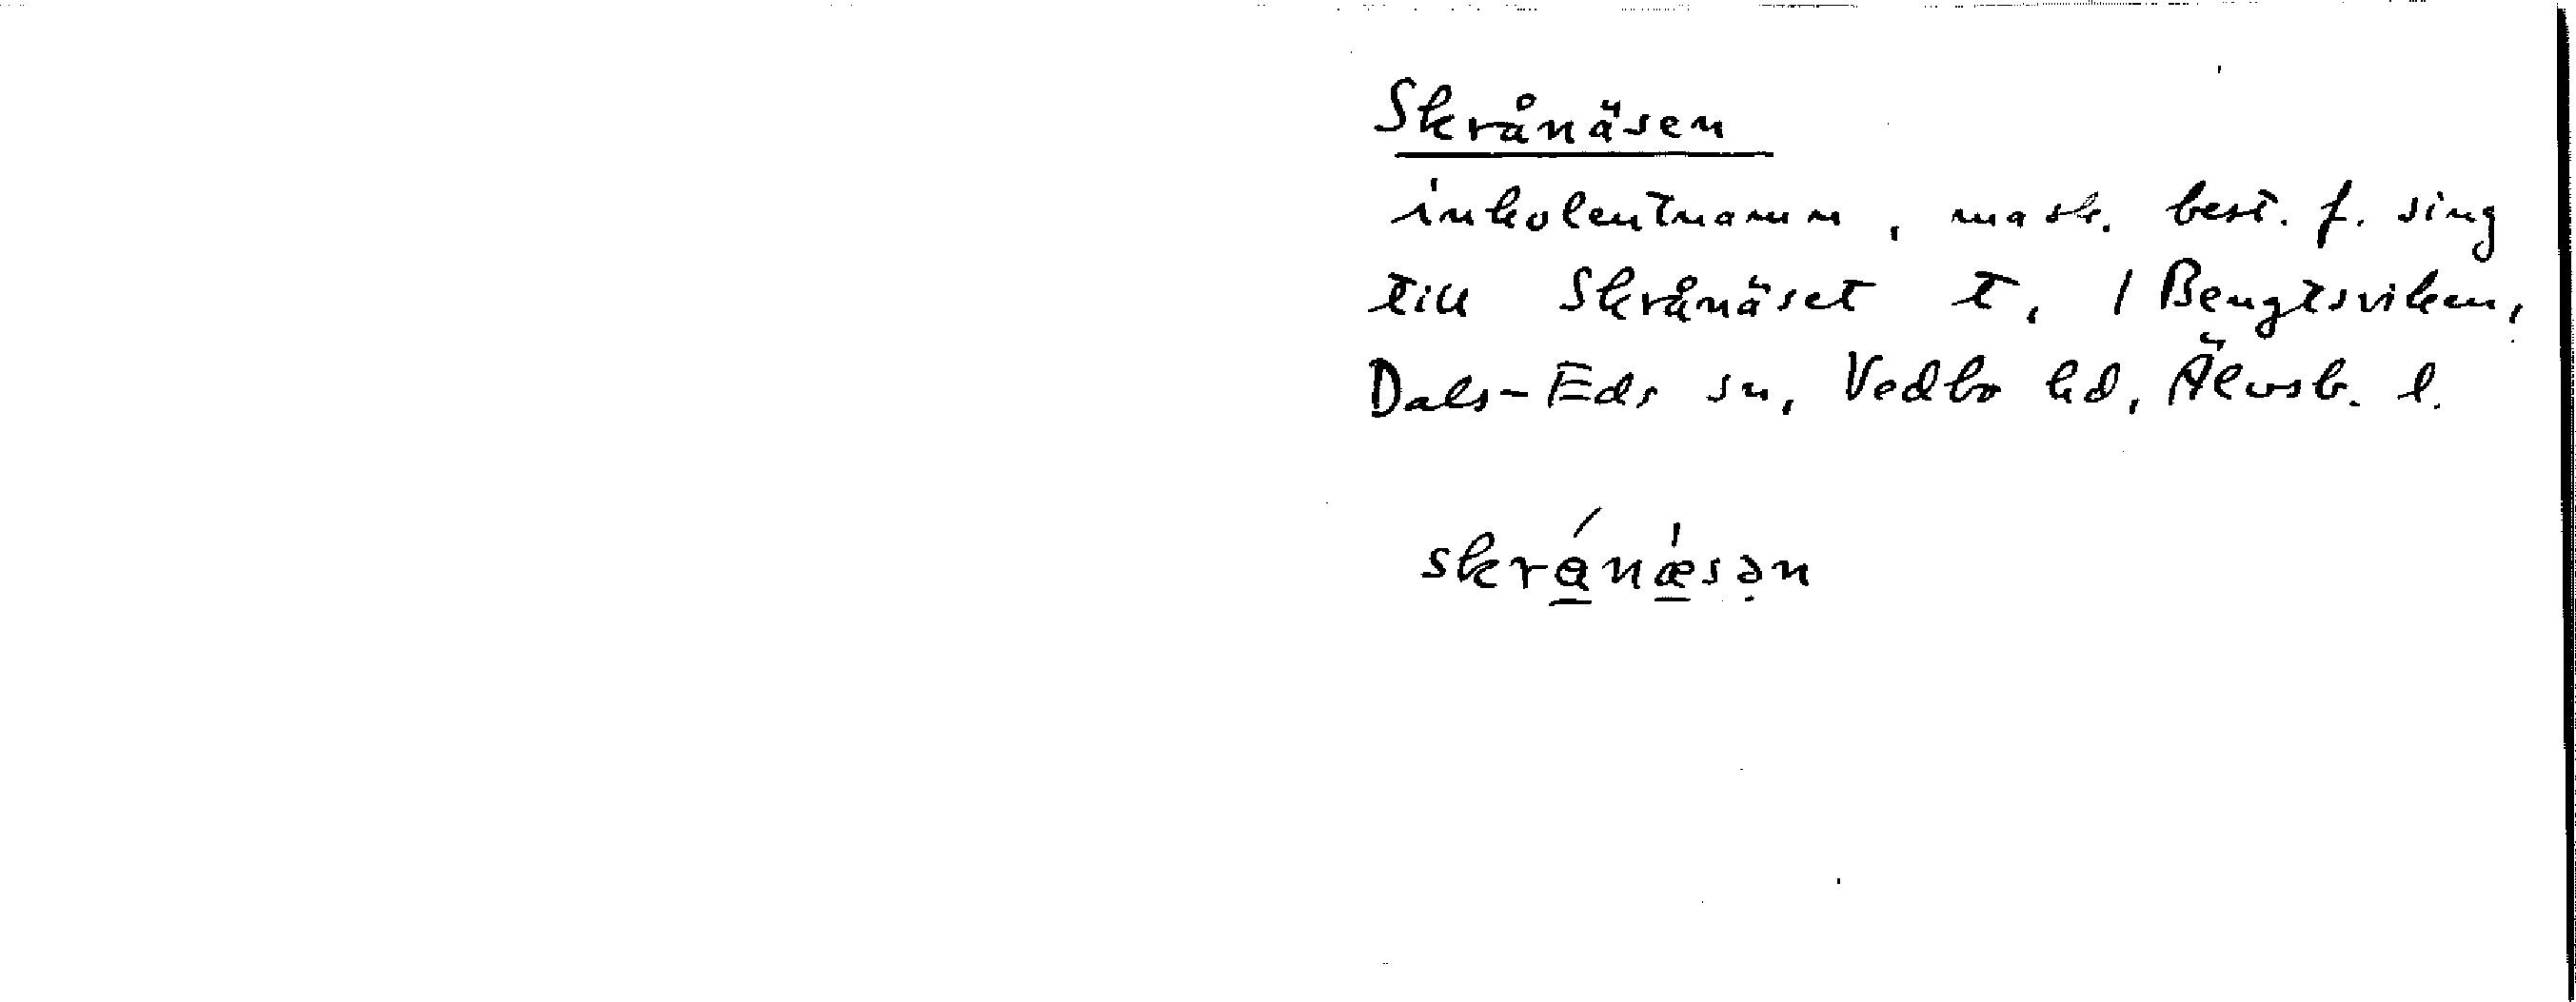 Skrånäsen
inkolentnamn, mask. best. f. sing
till Skrånäset t, 1 Bengtsviken,
Dals-Eds sn, Vedbo hd, Älvsb. l.
skrǻnǽsən